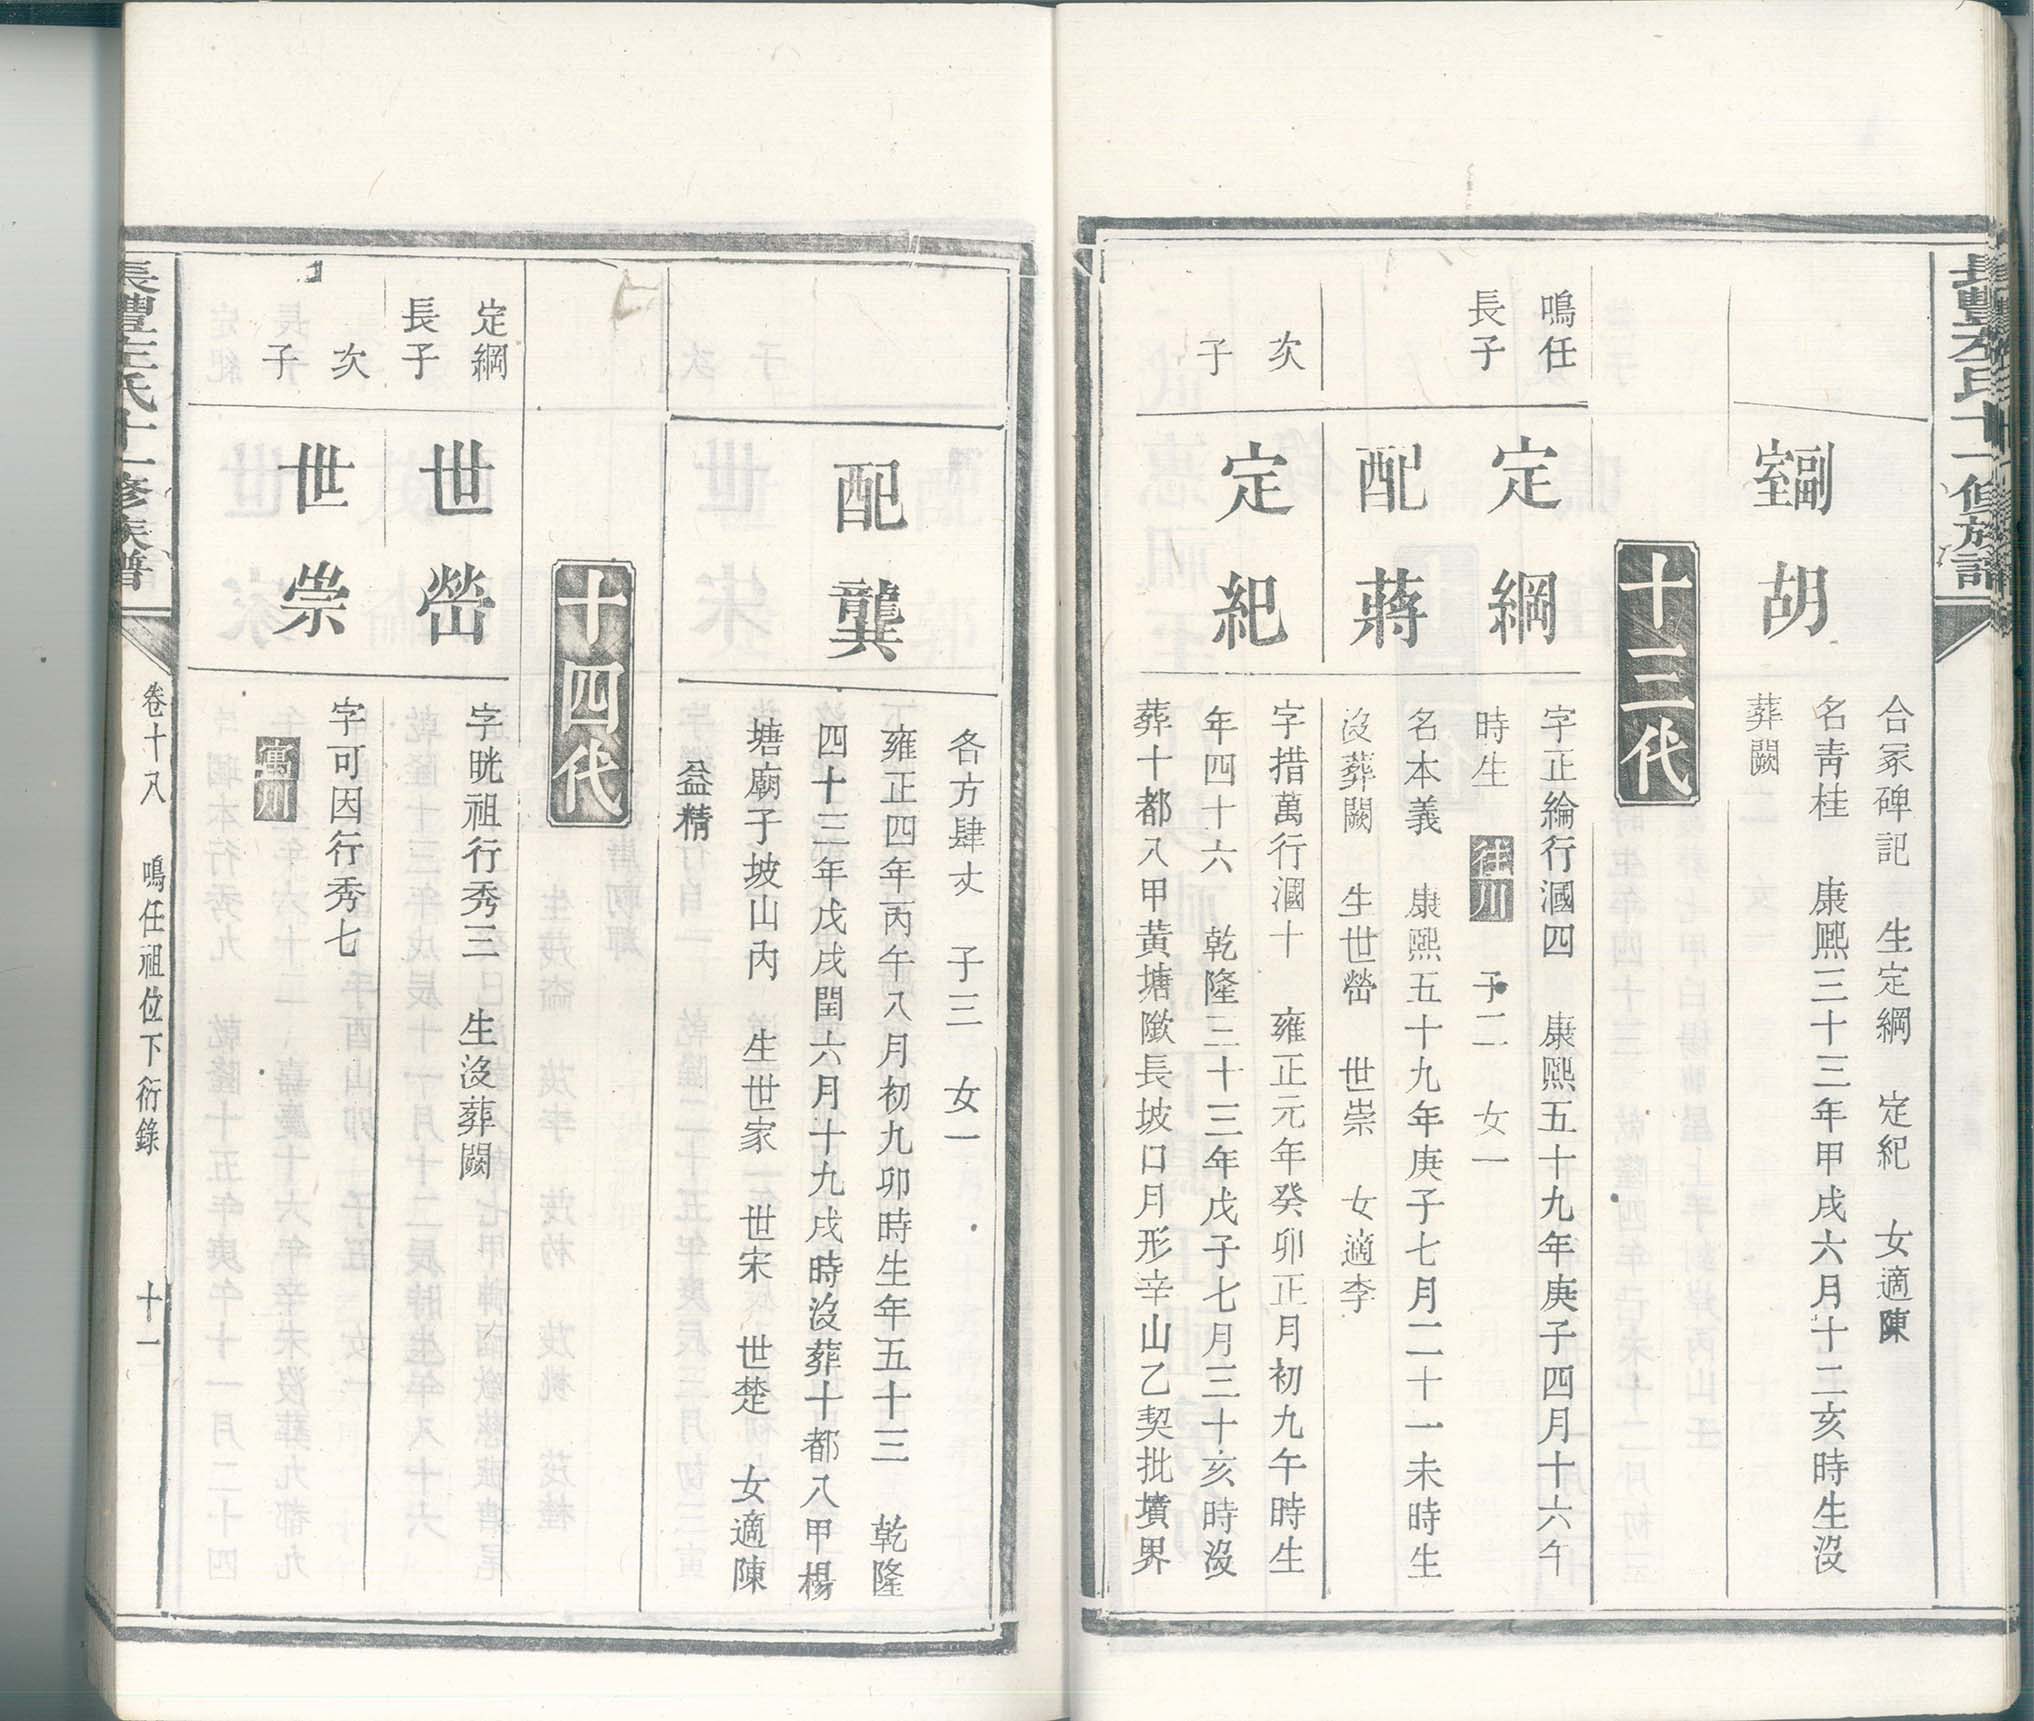 合冢碑記　生定綱　定紀　女適陳
副室胡
名青桂　康熙三十三年甲戌六月十二亥時生沒
葬闕
十三代
鳴任長子
定綱
字正綸行漍四　康熙五十九年庚子四月十六午
時生　往川　子二　女一
配蔣
名本義　康熙五十九年庚子七月二十一未時生
沒葬闕　生世嶅　世崇　女適李
次子
定紀
字措萬行漍十　雍正元年癸卯正月初九午時生
年四十六　乾隆三十三年戊子七月三十亥時沒
葬十都八甲黃塘墩長坡口月形辛山乙契批墳界
各方肆丈　子三　女一
配龔
雍正四年丙午八月初九卯時生年五十三　乾隆
四十三年戊戌閏六月十九戌時沒葬十都八甲楊
塘廟子坡山內　生世家　世宋　世楚　女適陳
益精
十四代
定綱長子
世嶅
字晄祖行秀三　生沒葬闕
次子
世崇
字可因行秀七
寓川
卷十八　鳴任祖位下衍錄　十一